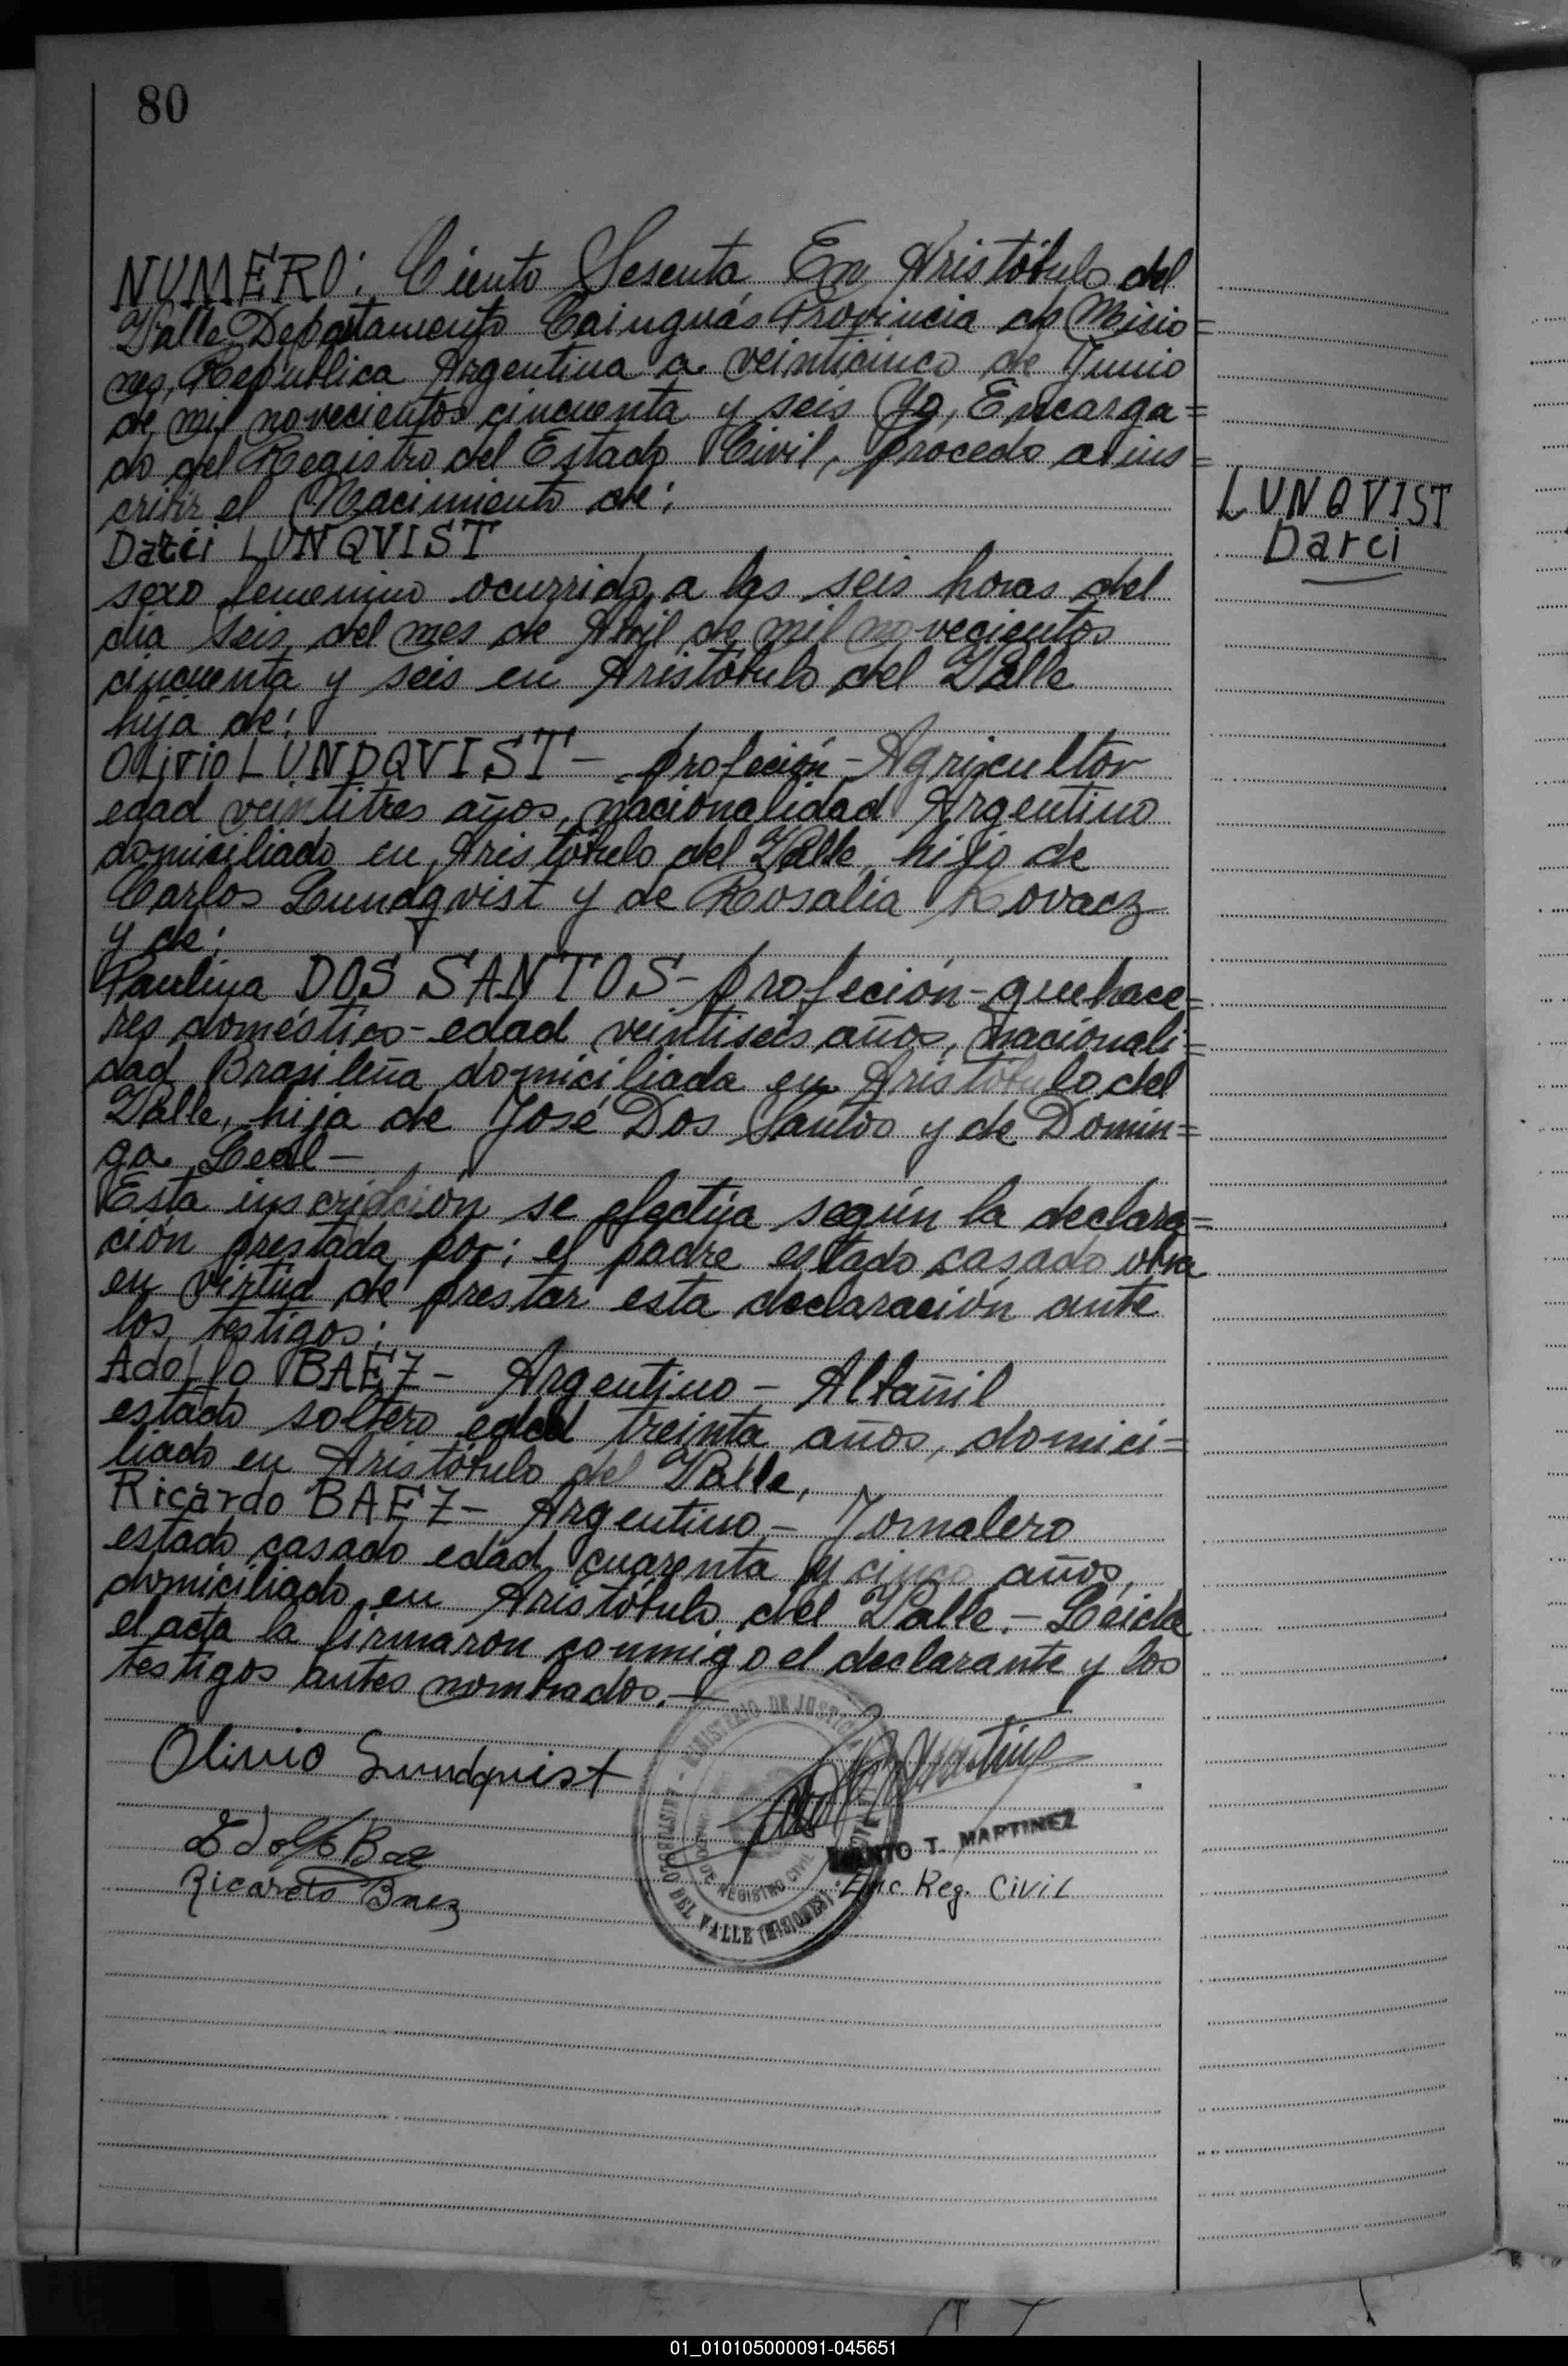 80
NUMERO: Ciento Sesenta En Aristóbulo del
Valle Departamento Cainguás Provincia de Misio=
nes, Republica Argentina a veinticinco de Junio
de mil novecientos cincuenta y seis Yo, Encarga=
do del Registro del Estado Civil, procedo a ins=
cribir el Nacimiento de:
Darci LUNQVIST
LUNQVIST
Darci
sexo femenino ocurrido a las seis horas del
dia seis del mes de Abril de mil novecientos
cincuenta y seis en Aristóbulo del Valle
hija de:
Olivio LUNDQVIST - profeción - Agricultor
edad veintitres años, nacionalidad Argentino
domiciliado en Aristóbulo del Valle, hijo de
Carlos Lundqvist y de Rosalia Kovacz
y de:
Paulina DOS SANTOS - profeción - quehace=
res doméstico - edad veintiseis años, nacionali=
dad Brasileña domiciliada en Aristóbulo del
Valle, hija de José Dos Santos y de Domin=
ga Leal -
Esta inscripción se efectúa según la declara=
ción prestada por: el padre estado casado obra
en virtud de prestar esta declaración ante
los testigos:
Adolfo BAEZ - Argentino - Albañil
estado soltero edad treinta años, domici=
liado en Aristóbulo del Valle,
Ricardo BAEZ - Argentino - Jornalero
estado casado edad cuarenta y cinco años,
domiciliado en Aristóbulo del Valle. - Leida
el acta la firmaron conmigo el declarante y los
testigos antes nombrados. -
Olivio Lundquist
Adolfo Baez
Ricardo Baez
MINISTERIO DE JUSTICIA
ARISTOBULO DEL VALLE (MISIONES)
REGISTRO CIVIL
T. MARTINEZ
Enc. Reg. Civil
01_010105000091-045651